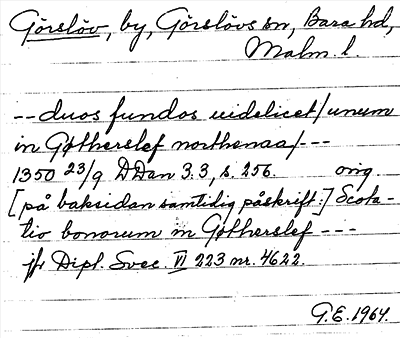 Görslöv, by, Görslövs sn, Bara hd,
Malm. l.
-- duos fundos uidelicet/unum
in Gøtherslef northenaa/---
1350 23/9 DDan 3.3, s. 256. orig.
[på baksidan samtidig påskrift:] Scota-
tio bonorum in Gøtherslef ---
jfr Dipl. Svec. VI 223 nr. 4622.
G.E. 1964.